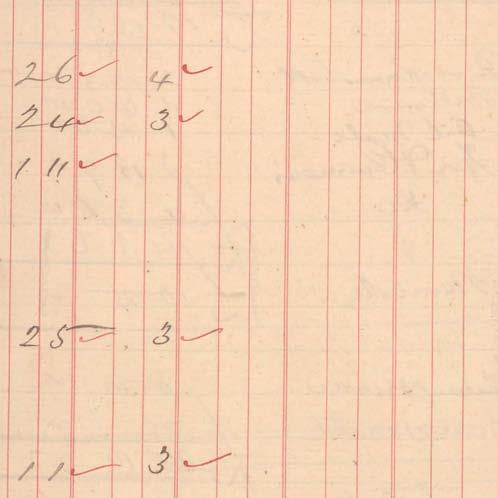 26✓ 4✓
24✓ 3✓
1 11✓
25✓ 3✓
11✓ 3✓